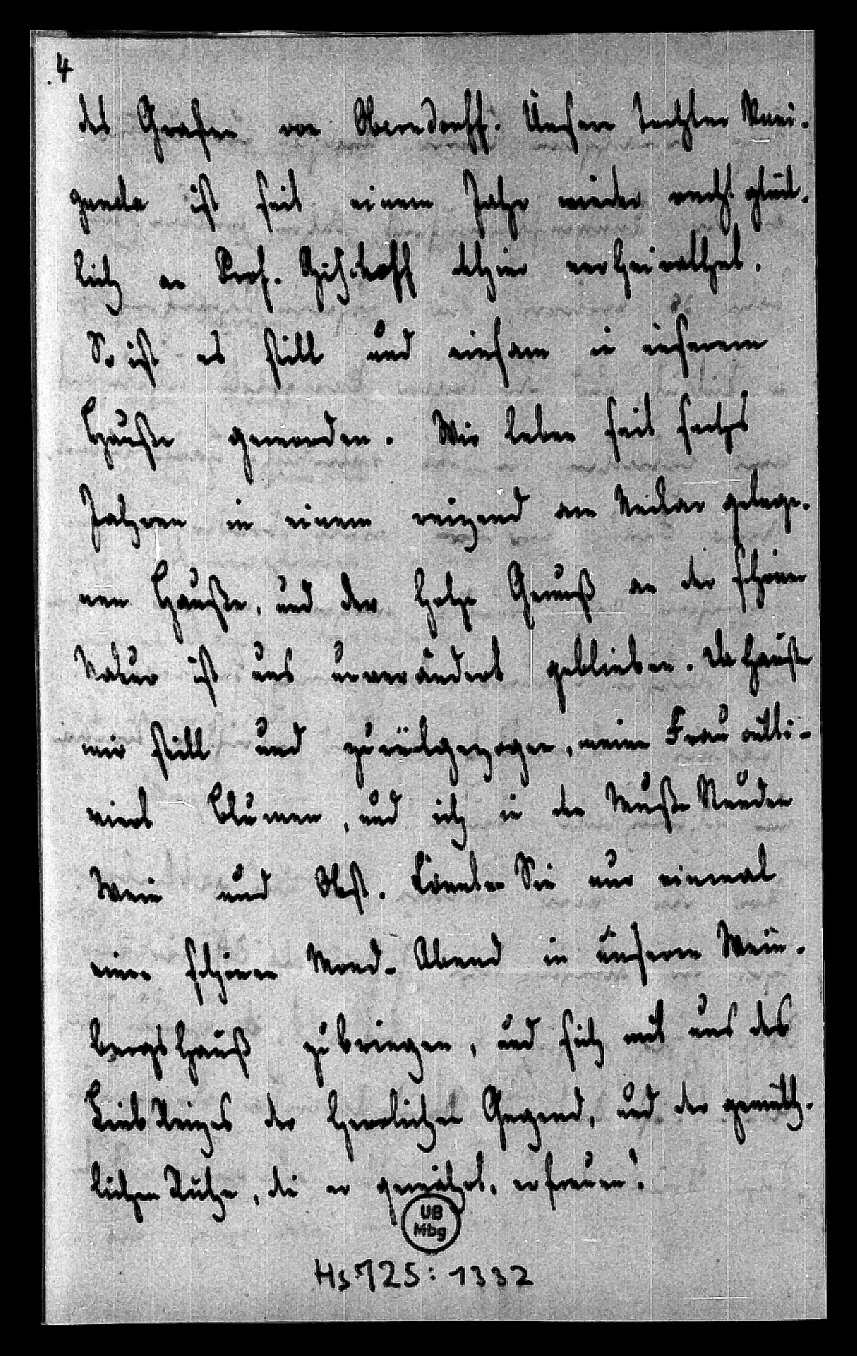 4
des Grafen von Oberndorff. Unsere Tochter Kuni-
gunde ist seit einem Jahr wieder recht glück-
lich an Prof. dahier verheirathet.
So ist es still und einsam in unserem
Hauße geworden. Wir leben seit sechs
Jahren in einem reizend am Neckar gelege-
nen Hauße, und der hohe Genuß an der schönen
Natur ist uns unverändert geblieben. Da haußen
wir still und zurückgezogen, meine Frau culti-
virt Blumen, und ich in den Muße Stunden
Wein und Obst. Könnten Sie nur einmal
einen schönen Mond-Abend in unserem Wein-
bergshauß zubringen, und sich mit uns des
Reizes der herrlichen Gegend, und der gemüth-
lichen Ruhe, die er gewährt, erfreuen!
UB
Mbg
Hs 725: 1332